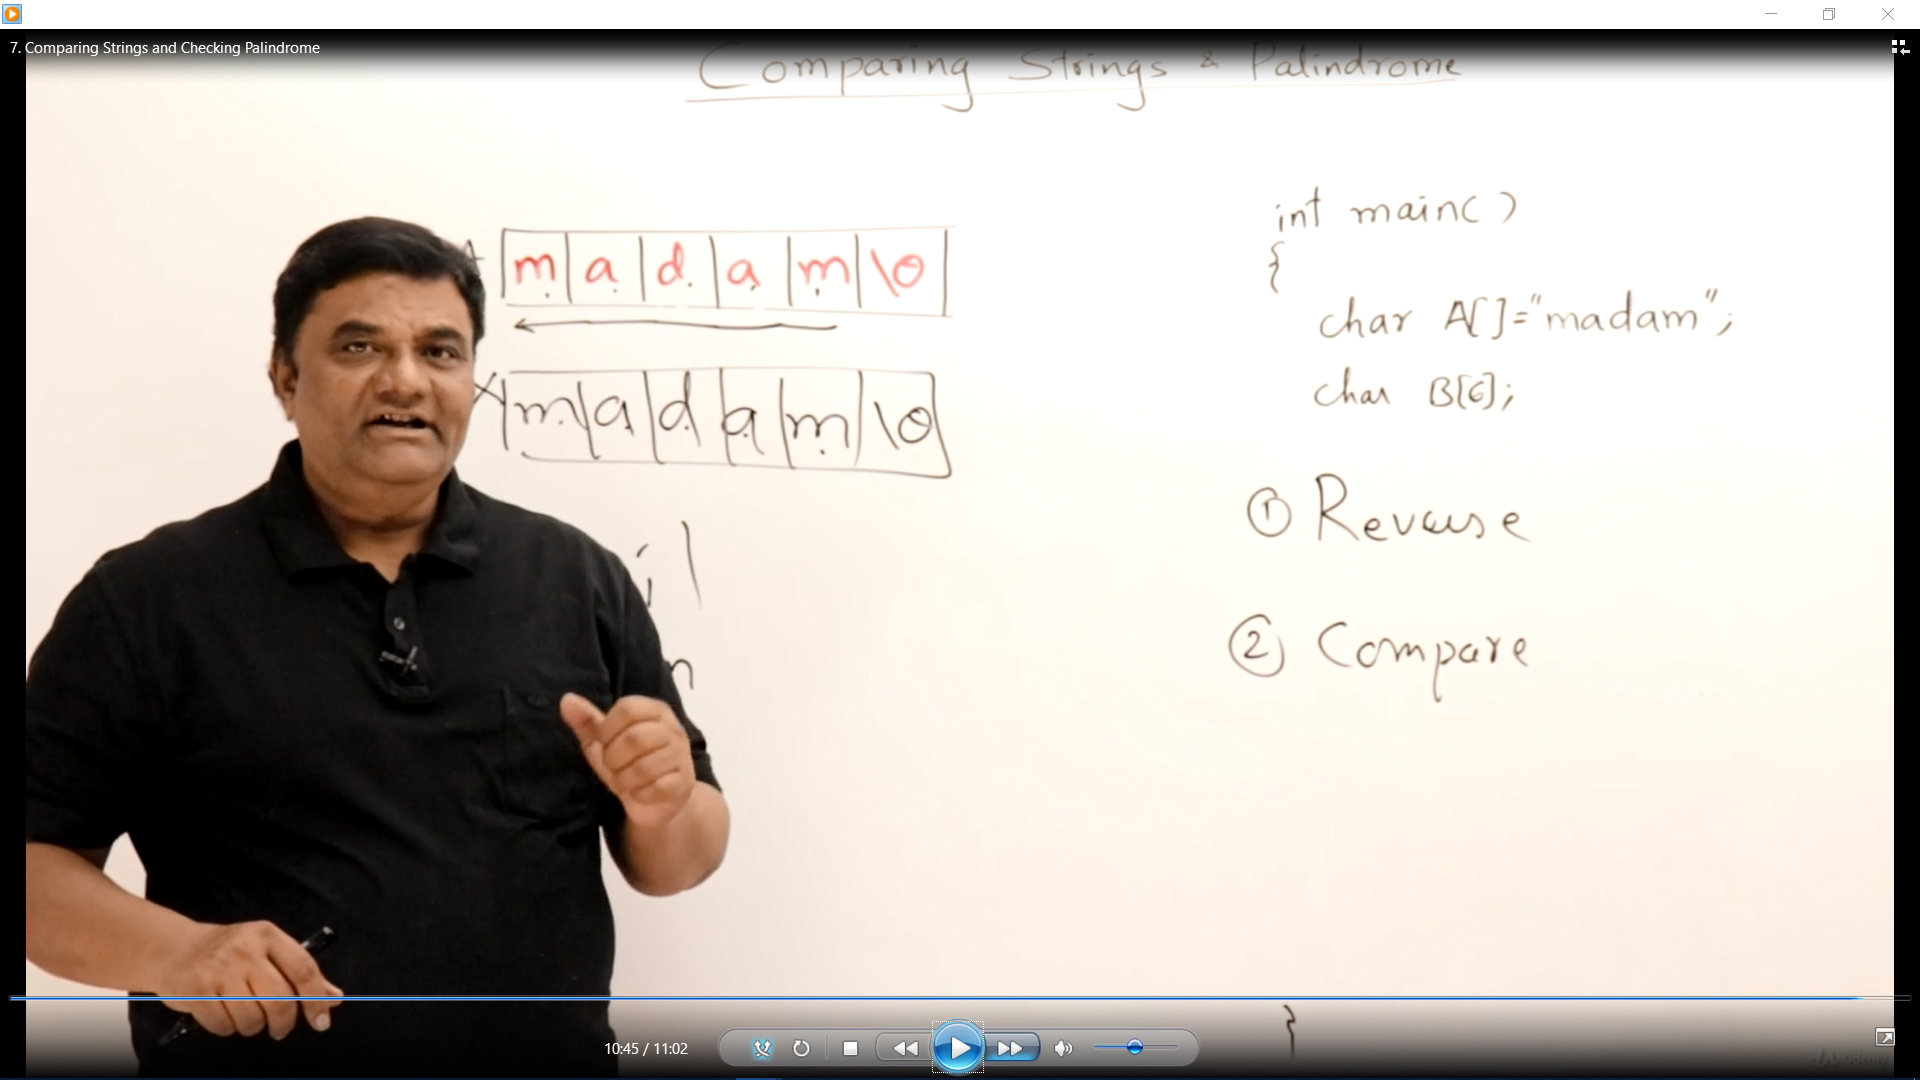 7. Comparing Strings and Checking Palindrome
Comparing Strings & Palindrome
A m a d a m \0
m a d a m \0
int main( )
{
char A[]="madam";
char B[6];
① Reverse
② Compare
}
10:45 / 11:02
udemy